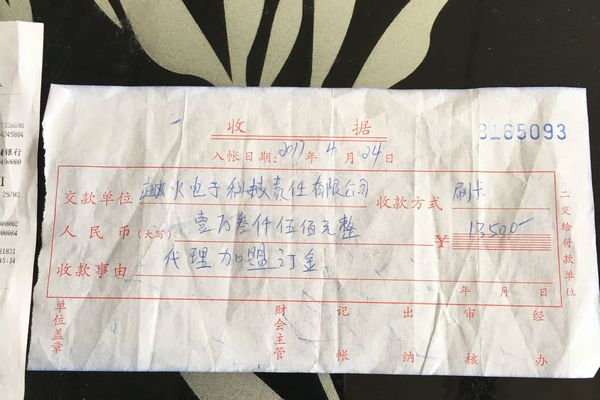 1326698
4245884
银行
490000
25/02
00002
31831
15:14
收 据
3165093
入帐日期: 2017 年 4 月 24 日
交款单位 火电子科技责任有限公司 收款方式 刷卡
人民币(大写) 壹万叁仟伍佰元整 ¥ 13500-
收款事由 代理加盟订金
年 月 日
二交给付款单位
单位盖章 财会主管 记帐 出纳 审核 经办